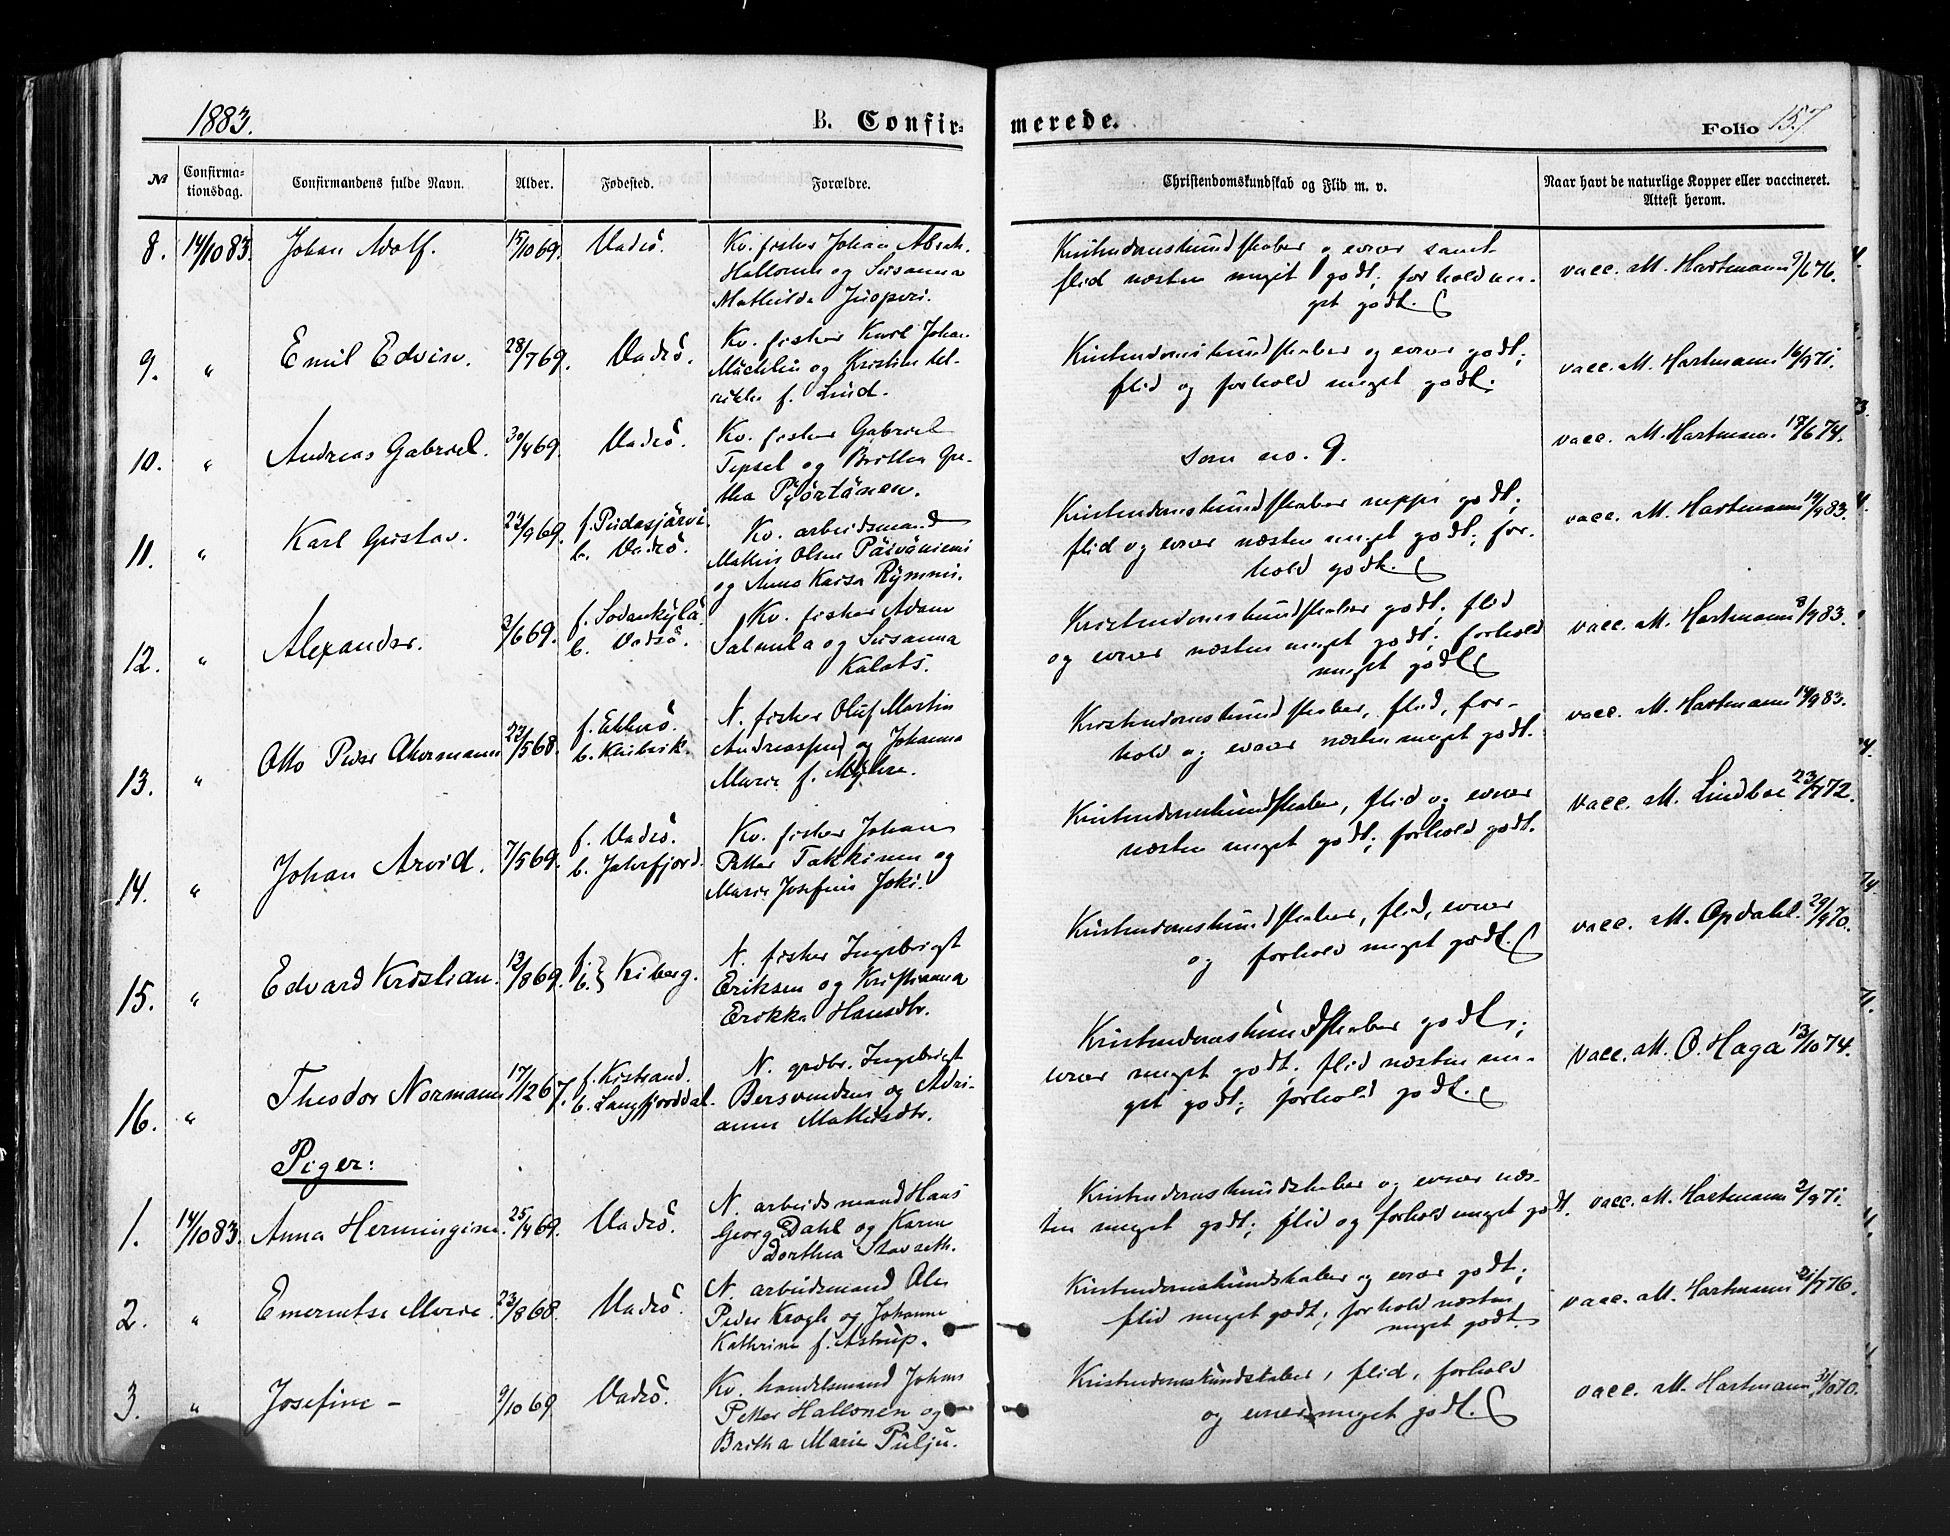 1883.
B. Confirmerede.
Folio 157
№ Confirmationsdag. Confirmandens fulde Navn. Alder. Fødested. Forældre. Christendomskundskab og Flid m. v. Naar havt de naturlige Kopper eller vaccineret. Attest herom.
8. 14/10 83. Johan Adolf. 15/10 69. Vadsö. Kv. fisker Johan Abrah. Kristendomskundskaber og evner samt vacc. att. Hartmann 9/6 76.
Hallonen og Susanna flid næsten meget godt; forhold me-
Mathilda Juoperi. get godt.
9. " Emil Edvin. 28/7 69. Vadsö. Kv. fisker Karl Johan Kristendomskundskaber og evner godt; vacc. att. Hartmann 16/9 71.
og Kristine flid og forhold meget godt.
f. Lund.
10. " Andreas Gabriel. 30/4 69. Vadsö. Kv. fisker Gabriel som no. 9. vacc. att. Hartmann 17/6 74.
Tepsel og Britha Gre-
tha Pyörtänen.
11. " Karl Gustav. f. Pudasjärvi. Kv. arbeidsmand Kristendomskundskaber neppe godt; vacc. att. Hartmann 14/9 83.
b. Vadsö. Mathis Olsen Päiväniemi flid og evner næsten meget godt; for-
og Anna Kaisa Rymmi. hold godt.
12. " Alexander. 3/6 69. f. Sodankylä. Kv. fisker Adam Kristendomskundskaber godt; flid vacc. att. Hartmann 8/9 83.
b. Vadsö. Salmela og Susanna og evner næsten meget godt; forhold
meget godt.
13. " Otto Peder Akermann 22/5 68. f. Ekkerö. N. fisker Oluf Martin Kristendomskundskaber, flid, for- vacc. att. Hartmann 14/9 83.
b. og Johanna hold og evner næsten meget godt.
Marie f. Myhre.
14. " Johan Arvid. 7/5 69. f. Vadsö. Kv. fisker Johan Kristendomskundskaber, flid og evner vacc. att. Lindboe 23/7 72.
b. Jakofjord. Petter Takkinen og næsten meget godt; forhold godt.
Marie Josefine Joki.
15. " Edvard Kristian. 13/8 69. f. b. } Kiberg. N. fisker Ingebrigt Kristendomskundskaber, flid, evner vacc. att. Opdahl. 29/9 70.
Eriksen og Kristianna og forhold meget godt.
Erikka Hansdtr.
16. " Theodor Normann 17/12 67. f. Kistrand. N. grdbr. Ingebrigt Kristendomskundskaber godt; vacc. att. O. Haga 13/10 74.
b. Langfjorddal. Bersvendsen og Adri- evner meget godt; flid næsten me-
anna Mathisdtr. get godt; forhold godt.
Piger:
1. 14/10 83. Anna Hermingine. 25/4 69. Vadsö. N. arbeidsmand Hans Kristendomskundskaber og evner næs- vacc. att. Hartmann 2/9 71.
Georg Dahl og Karen ten meget godt; flid og forhold meget godt.
Dorthea Stavseth.
2. " Emerentse Marie. 23/8 68. Vadsö. N. arbeidsmand Ole Kristendomskundskaber og evner godt; vacc. att. Hartmann 21/7 76.
Peder Krogh og Johanne flid meget godt; forhold næsten
Kathrine f. Astrup. meget godt.
3. " Josefine – 9/10 69 Vadsö. Kv. handelsmand Johan Kristendomskundskaber, flid, forhold vacc. att. Hartmann, 31/10 70.
Petter Hallonen og og evner meget godt.
Britha Marie Pulju.